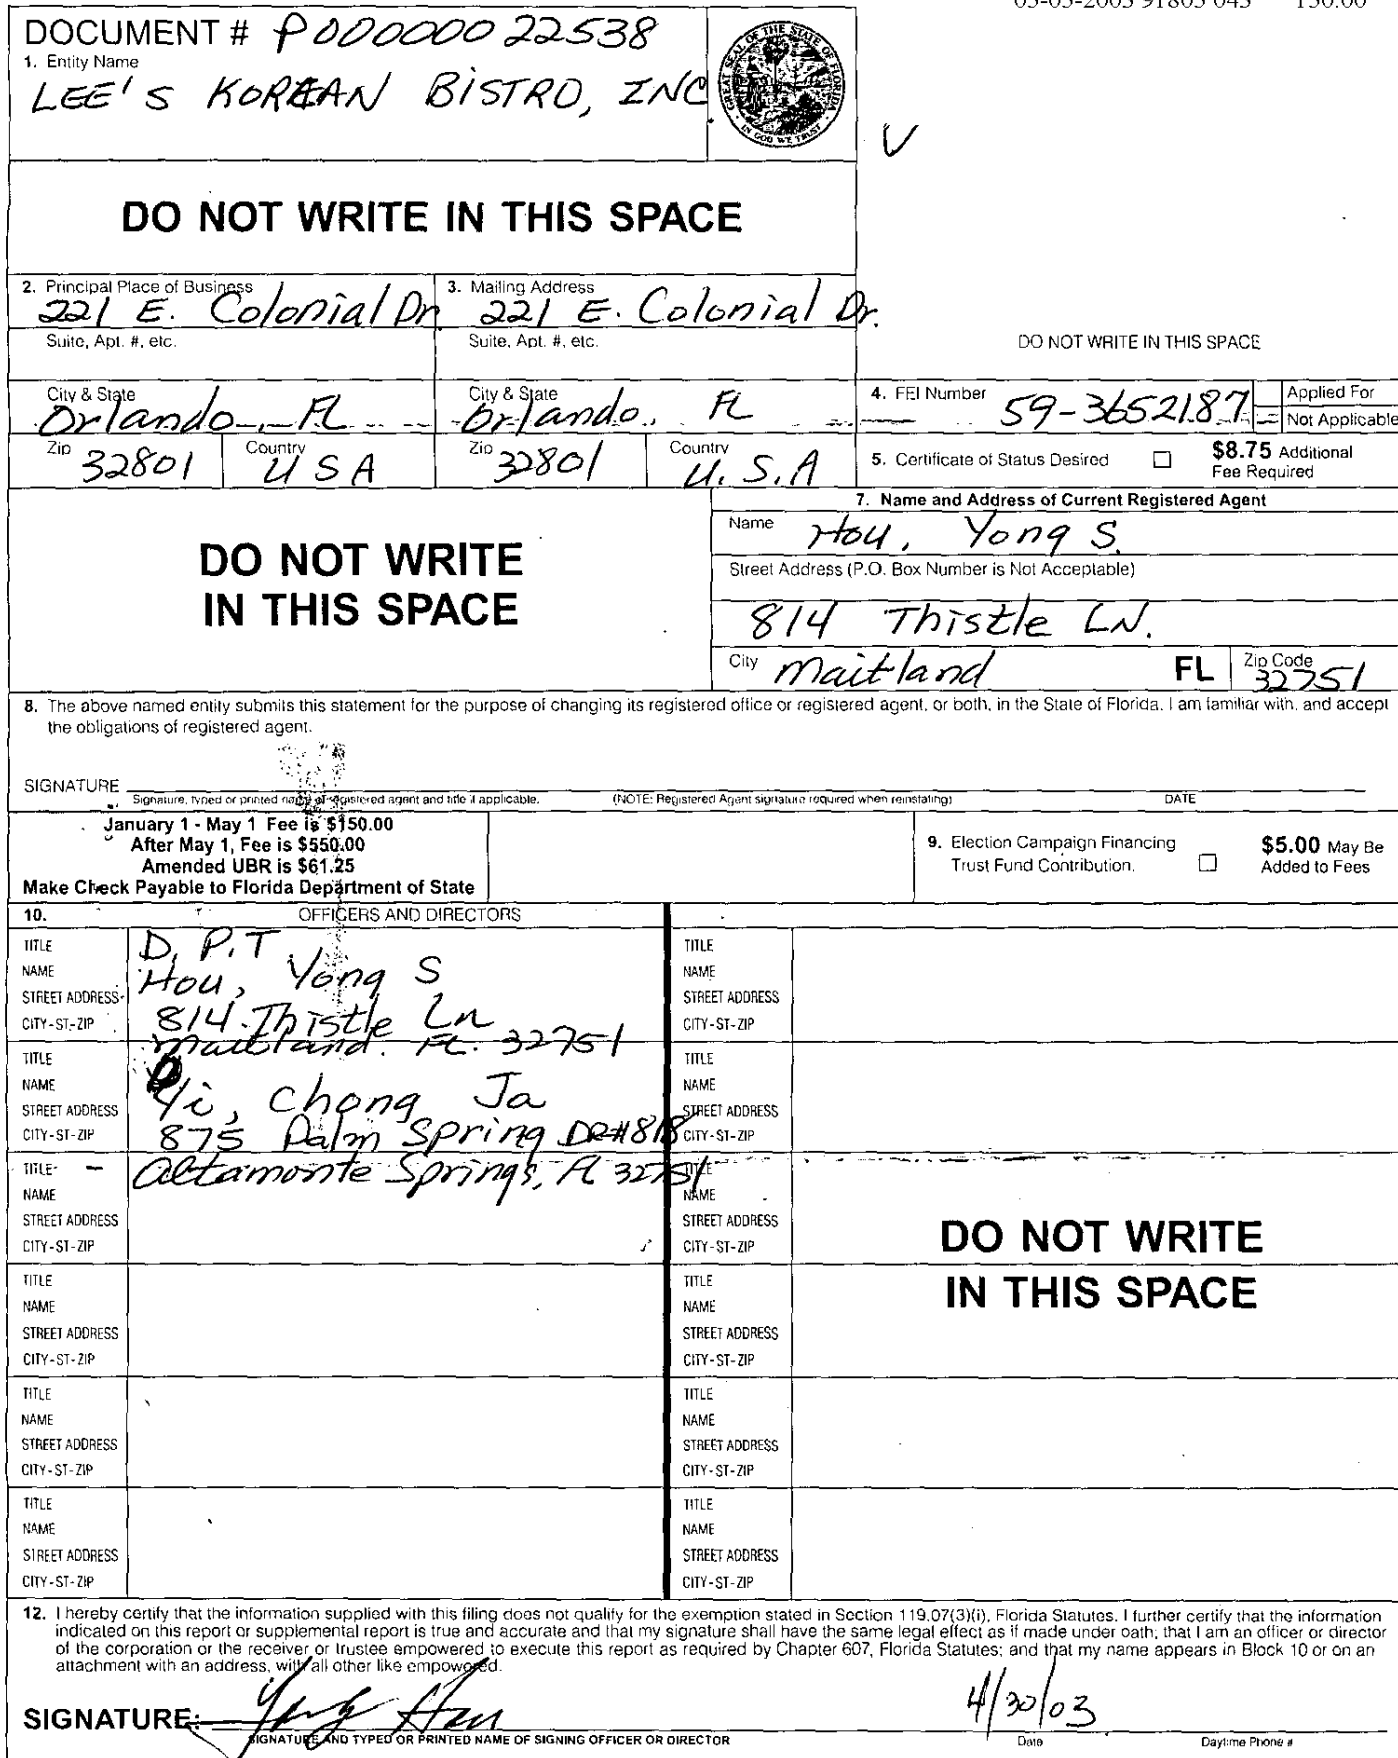 DOCUMENT # P00000022538
1. Entity Name
LEE'S KOREAN BISTRO, INC.
GREAT SEAL OF THE STATE OF FLORIDA
IN GOD WE TRUST
DO NOT WRITE IN THIS SPACE
2. Principal Place of Business
221 E. Colonial Dr.
3. Mailing Address
221 E. Colonial Dr.
Suite, Apt. #, etc.
Suite, Apt. #, etc.
DO NOT WRITE IN THIS SPACE
City & State
Orlando, FL
City & State
Orlando, FL
4. FEI Number
59-3652187
Applied For
Not Applicable
Zip
32801
Country
USA
Zip
32801
Country
U.S.A
5. Certificate of Status Desired
$8.75 Additional
Fee Required
DO NOT WRITE
IN THIS SPACE
7. Name and Address of Current Registered Agent
Name
Hou, Yong S.
Street Address (P.O. Box Number is Not Acceptable)
814 Thistle LN.
City
Maitland
FL
Zip Code
32751
8. The above named entity submits this statement for the purpose of changing its registered office or registered agent, or both, in the State of Florida. I am familiar with, and accept
the obligations of registered agent.
SIGNATURE
Signature, typed or printed name of registered agent and title if applicable.
(NOTE: Registered Agent signature required when reinstating)
DATE
January 1 - May 1 Fee is $150.00
After May 1, Fee is $550.00
Amended UBR is $61.25
Make Check Payable to Florida Department of State
9. Election Campaign Financing
Trust Fund Contribution.
$5.00 May Be
Added to Fees
10.
OFFICERS AND DIRECTORS
TITLE
D.P.T
NAME
Hou, Yong S
STREET ADDRESS
814 Thistle Ln
CITY-ST-ZIP
Maitland. FL. 32751
TITLE
NAME
STREET ADDRESS
CITY-ST-ZIP
TITLE
NAME
Yi, Chong Ja
STREET ADDRESS
875 Palm Spring DR #818
CITY-ST-ZIP
Altamonte Springs, FL 32751
TITLE
NAME
STREET ADDRESS
CITY-ST-ZIP
TITLE
NAME
STREET ADDRESS
CITY-ST-ZIP
TITLE
NAME
STREET ADDRESS
CITY-ST-ZIP
DO NOT WRITE
IN THIS SPACE
TITLE
NAME
STREET ADDRESS
CITY-ST-ZIP
TITLE
NAME
STREET ADDRESS
CITY-ST-ZIP
TITLE
NAME
STREET ADDRESS
CITY-ST-ZIP
TITLE
NAME
STREET ADDRESS
CITY-ST-ZIP
TITLE
NAME
STREET ADDRESS
CITY-ST-ZIP
TITLE
NAME
STREET ADDRESS
CITY-ST-ZIP
12. I hereby certify that the information supplied with this filing does not qualify for the exemption stated in Section 119.07(3)(i), Florida Statutes. I further certify that the information
indicated on this report or supplemental report is true and accurate and that my signature shall have the same legal effect as if made under oath; that I am an officer or director
of the corporation or the receiver or trustee empowered to execute this report as required by Chapter 607, Florida Statutes; and that my name appears in Block 10 or on an
attachment with an address, with all other like empowered.
SIGNATURE:
4/30/03
SIGNATURE AND TYPED OR PRINTED NAME OF SIGNING OFFICER OR DIRECTOR
Date
Daytime Phone #